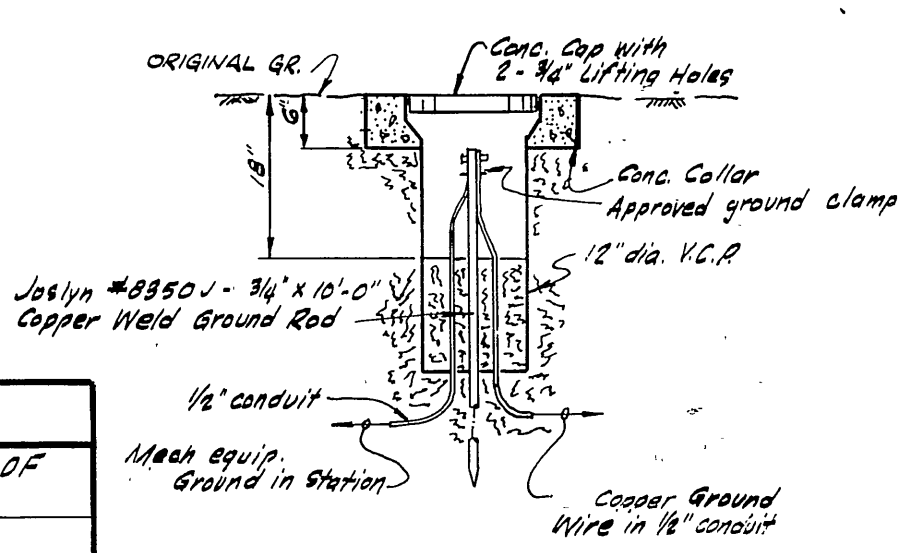 ORIGINAL GR.
Conc. Cap with
2 - 3/4" Lifting Holes
6"
18"
Conc. Collar
Approved ground clamp
12" dia. V.C.P.
Joslyn #8350J - 3/4" x 10'-0"
Copper Weld Ground Rod
1/2" conduit
OF
Mech equip.
Ground in Station
Copper Ground
Wire in 1/2" conduit